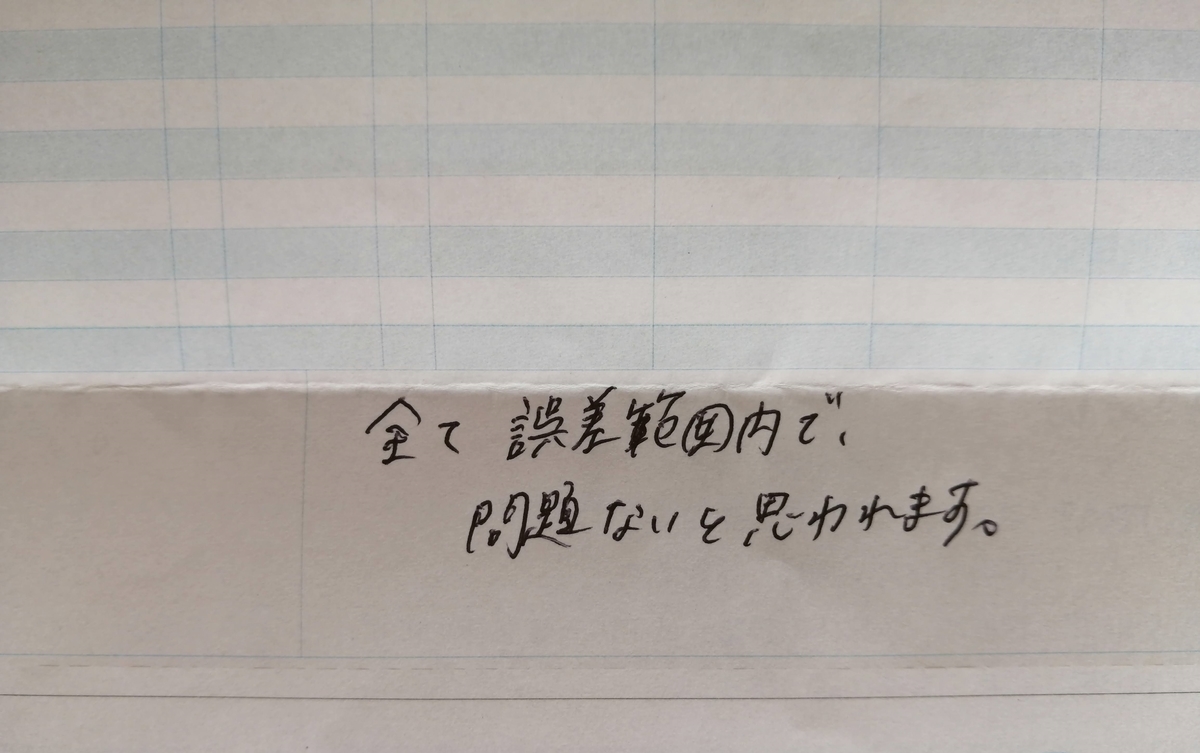 全て 誤差範囲内で、
問題ないと思われます。